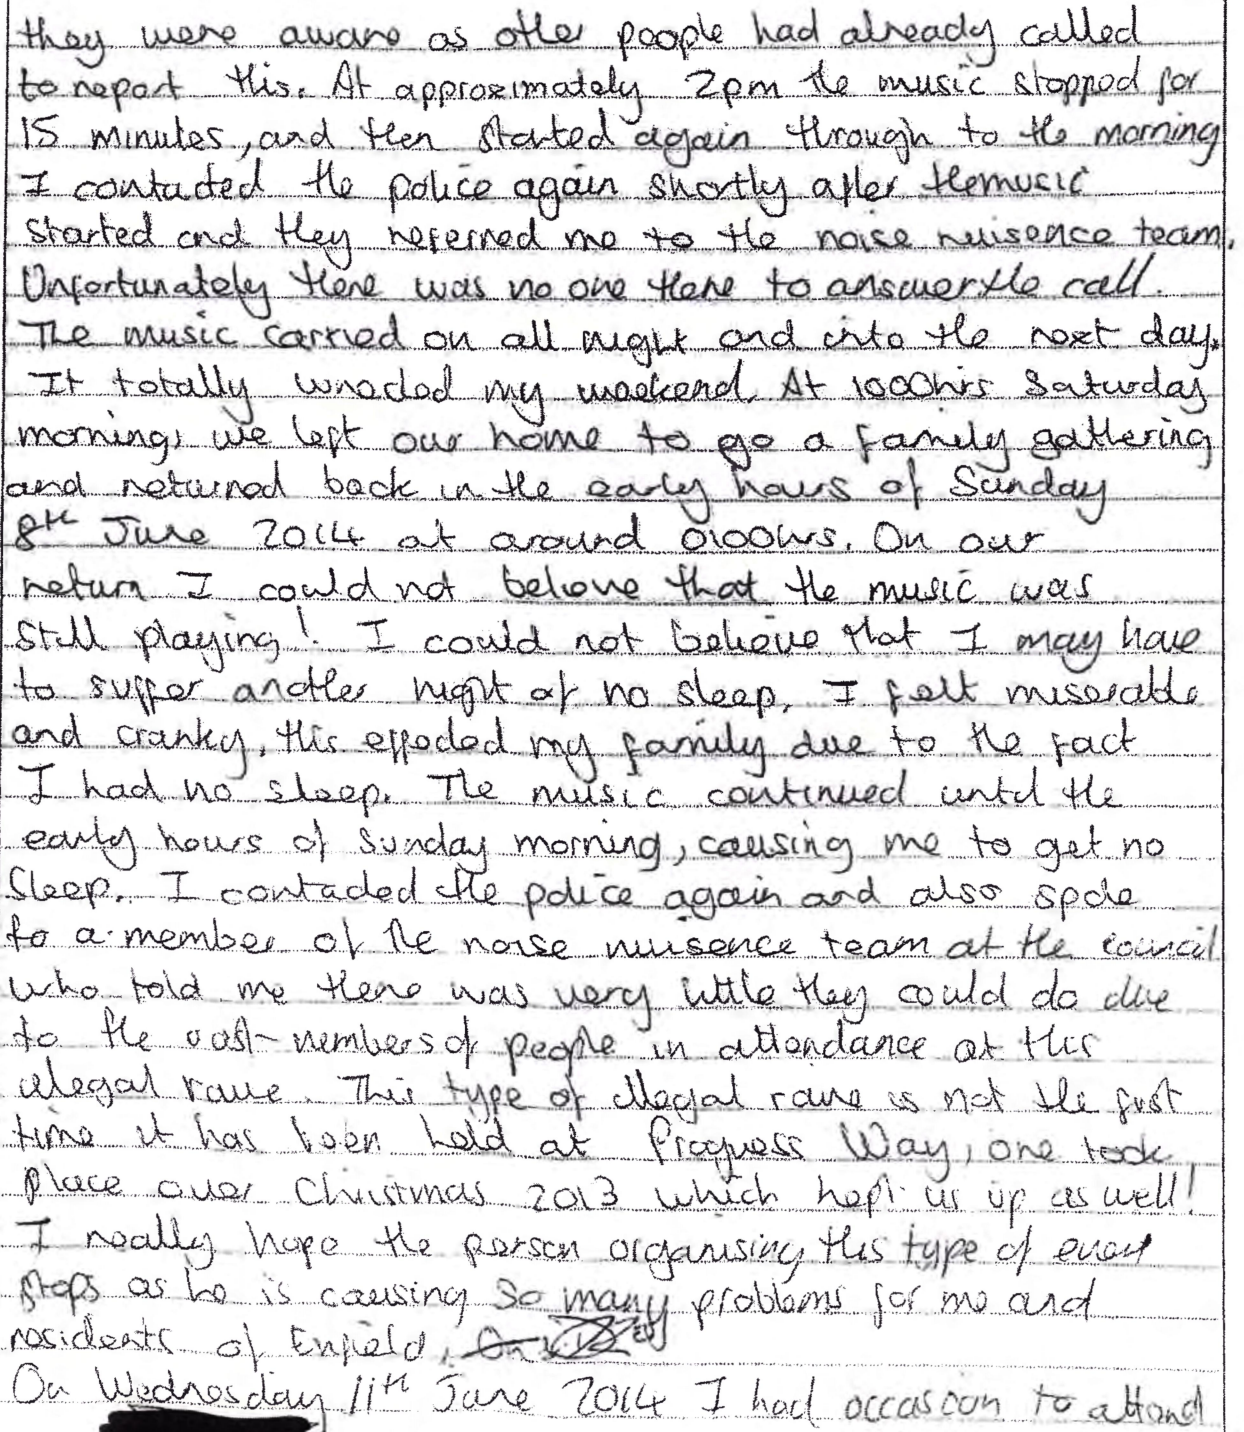 they were aware as other people had already called
to report this. At approximately 2pm the music stopped for
15 minutes, and then started again through to the morning
I contacted the police again shortly after the music
started and they referred me to the noise nuisence team.
Unfortunately there was no one there to answer the call.
The music carried on all night and into the next day.
It totally wrecked my weekend. At 1000hrs Saturday
morning, we left our home to go a family gathering
and returned back in the early hours of Sunday
8th June 2014 at around 0100hrs. On our
return I could not believe that the music was
still playing! I could not believe that I may have
to suffer another night of no sleep, I felt miserable
and cranky, this effected my family due to the fact
I had no sleep. The music continued until the
early hours of Sunday morning, causing me to get no
sleep. I contacted the police again and also spoke
to a member of the noise nuisence team at the council
who told me there was very little they could do due
to the vast numbers of people in attendance at this
illegal rave. This type of illegal rave is not the first
time it has been held at Progress Way, one took
place over Christmas 2013 which kept us up as well!
I really hope the person organising this type of event
stops as he is causing so many problems for me and
residents of Enfield.
On Wednesday 11th June 2014 I had occasion to attend